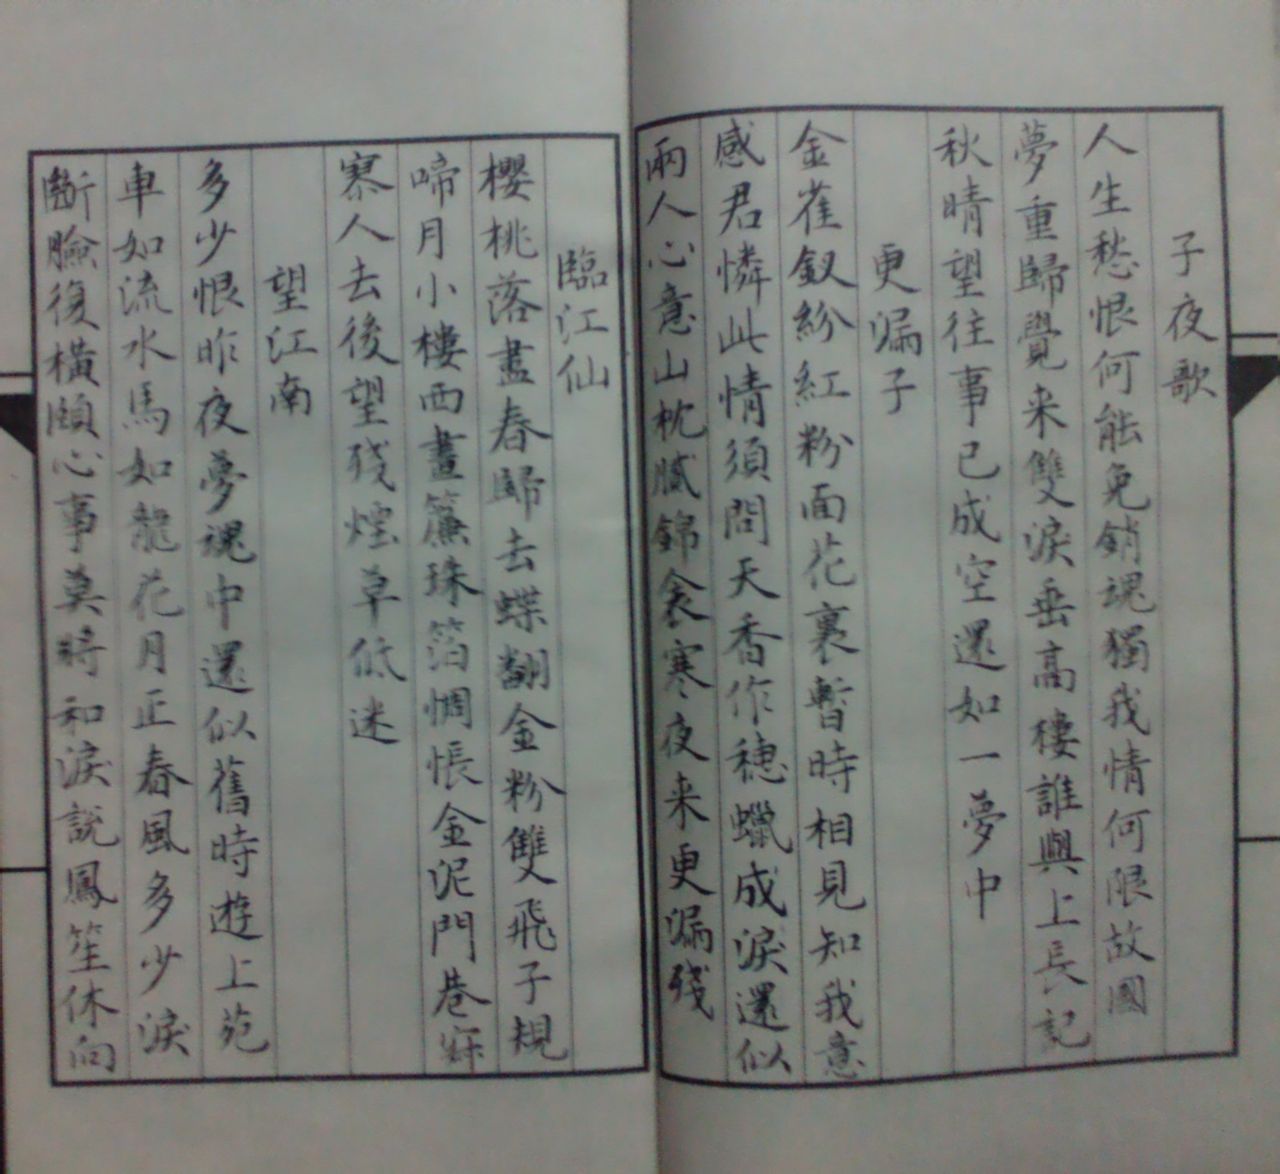 子夜歌
人生愁恨何能免銷魂獨我情何限故國
夢重歸覺来雙淚垂高樓誰與上長記
秋晴望往事已成空還如一夢中
更漏子
金雀釵紛紅粉面花裏暫時相見知我意
感君憐此情須問天香作穗蠟成淚還似
兩人心意山枕膩錦衾寒夜来更漏殘
臨江仙
櫻桃落盡春歸去蝶翻金粉雙飛子規
啼月小樓西畫簾珠箔惆悵金泥門巷寂
寥人去後望殘煙草低迷
望江南
多少恨昨夜夢魂中還似舊時遊上苑
車如流水馬如龍花月正春風多少淚
斷臉復橫頤心事莫時和淚說鳳笙休向